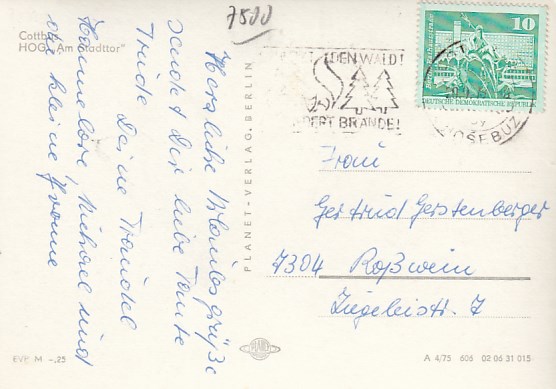 7500
Cottbus
HOG „Am Stadttor"
Herzliche Urlaubsgrüße
sendet Dir liebe Tante
Trude Deine Traudel
Hannelore, Michael und
die kleine Yvonne
PLANET-VERLAG · BERLIN
DEN WALD!
DERT BRÄNDE!
10
DEUTSCHE DEMOKRATISCHE REPUBLIK
Frau
Gertrud Gerstenberger
7304 Roßwein
Ziegeleistr. 7
EVP M –,25
A 4/75 606 02 06 31 015